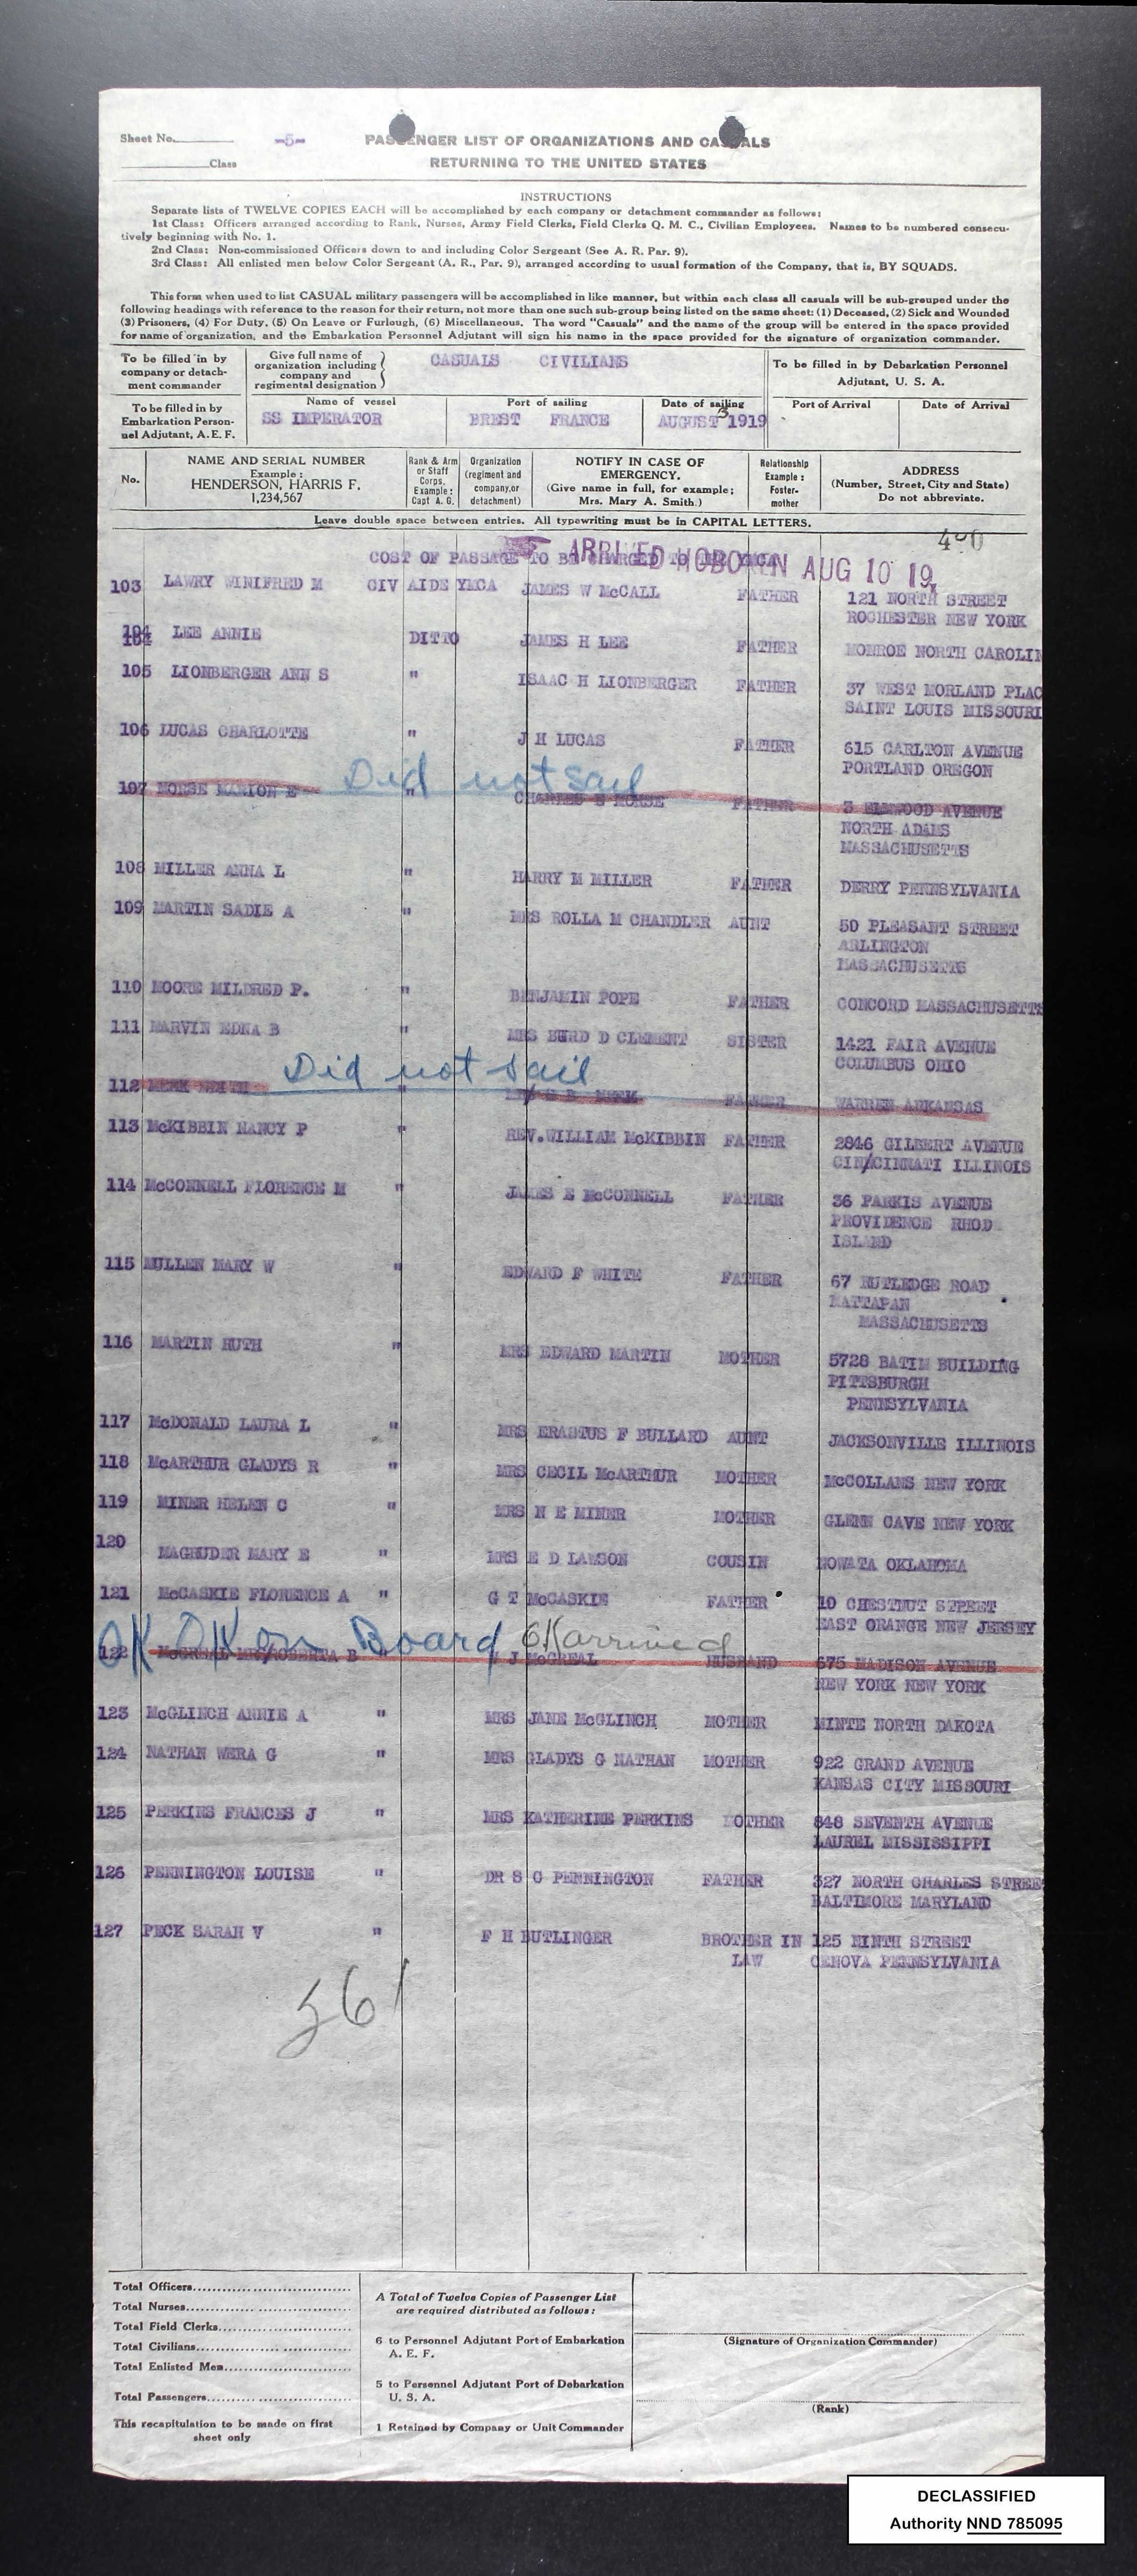 Sheet No. -5- PASSENGER LIST OF ORGANIZATIONS AND CASUALS
Class RETURNING TO THE UNITED STATES
INSTRUCTIONS
Separate lists of TWELVE COPIES EACH will be accomplished by each company or detachment commander as follows:
1st Class: Officers arranged according to Rank, Nurses, Army Field Clerks, Field Clerks Q. M. C., Civilian Employees. Names to be numbered consecu-
tively beginning with No. 1.
2nd Class: Non-commissioned Officers down to and including Color Sergeant (See A. R. Par. 9).
3rd Class: All enlisted men below Color Sergeant (A. R., Par. 9), arranged according to usual formation of the Company, that is, BY SQUADS.
This form when used to list CASUAL military passengers will be accomplished in like manner, but within each class all casuals will be sub-grouped under the
following headings with reference to the reason for their return, not more than one such sub-group being listed on the same sheet: (1) Deceased, (2) Sick and Wounded
(3) Prisoners, (4) For Duty, (5) On Leave or Furlough, (6) Miscellaneous. The word "Casuals" and the name of the group will be entered in the space provided
for name of organization, and the Embarkation Personnel Adjutant will sign his name in the space provided for the signature of organization commander.
To be filled in by
company or detach-
ment commander
Give full name of
organization including
company and
regimental designation
CASUALS CIVILIANS
To be filled in by Debarkation Personnel
Adjutant, U. S. A.
To be filled in by
Embarkation Person-
nel Adjutant, A. E. F.
Name of vessel
SS IMPERATOR
Port of sailing
BREST FRANCE
Date of sailing
AUGUST 3 1919
Port of Arrival
Date of Arrival
No.
NAME AND SERIAL NUMBER
Example:
HENDERSON, HARRIS F.
1,234,567
Rank & Arm
or Staff
Corps.
Example:
Capt A. G.
Organization
(regiment and
company, or
detachment)
NOTIFY IN CASE OF
EMERGENCY.
(Give name in full, for example;
Mrs. Mary A. Smith.)
Relationship
Example:
Foster-
mother
ADDRESS
(Number, Street, City and State)
Do not abbreviate.
Leave double space between entries. All typewriting must be in CAPITAL LETTERS.
COST OF PASSAGE TO BE CHARGED TO THE YMCA
ARRIVED HOBOKEN AUG 10 19
103 LAWRY WINIFRED M CIV AIDE YMCA JAMES W McCALL FATHER 121 NORTH STREET
ROCHESTER NEW YORK
104 LEE ANNIE DITTO JAMES H LEE FATHER MONROE NORTH CAROLIN
105 LIONBERGER ANN S " ISAAC H LIONBERGER FATHER 37 WEST MORLAND PLAC
SAINT LOUIS MISSOURI
106 LUCAS CHARLOTTE " J H LUCAS FATHER 615 CARLTON AVENUE
PORTLAND OREGON
Did not sail
107 MORSE MARION E " CHARLES E MORSE FATHER 3 ELMWOOD AVENUE
NORTH ADAMS
MASSACHUSETTS
108 MILLER ANNA L " HARRY M MILLER FATHER DERRY PENNSYLVANIA
109 MARTIN SADIE A " MRS ROLLA M CHANDLER AUNT 50 PLEASANT STREET
ARLINGTON
MASSACHUSETTS
110 MOORE MILDRED P. " BENJAMIN POPE FATHER CONCORD MASSACHUSETTS
111 MARVIN EDNA B " MRS BURD D CLEMENT SISTER 1421 FAIR AVENUE
COLUMBUS OHIO
Did not sail
112 MEEK " MEEK FATHER WARREN ARKANSAS
113 McKIBBIN NANCY P " REV.WILLIAM McKIBBIN FATHER 2846 GILBERT AVENUE
CIN/CINNATI ILLINOIS
114 McCONNELL FLORENCE M " JAMES E McCONNELL FATHER 36 PARKIS AVENUE
PROVIDENCE RHOD
ISLAND
115 MULLEN MARY W " EDWARD F WHITE FATHER 67 RUTLEDGE ROAD
MATTAPAN
MASSACHUSETTS
116 MARTIN RUTH " MRS EDWARD MARTIN MOTHER 5728 BATIM BUILDING
PITTSBURGH
PENNSYLVANIA
117 McDONALD LAURA L " MRS ERASTUS F BULLARD AUNT JACKSONVILLE ILLINOIS
118 McARTHUR GLADYS R " MRS CECIL McARTHUR MOTHER McCOLLANS NEW YORK
119 MINER HELEN C " MRS N E MINER MOTHER GLENN CAVE NEW YORK
120 MAGRUDER MARY E " MRS E D LAWSON COUSIN NOWATA OKLAHOMA
121 McCASKIE FLORENCE A " G T McCASKIE FATHER 10 CHESTNUT STREET
EAST ORANGE NEW JERSEY
OK OK on Board OK arrived
122 McGREAL MRS/ROBERTA B " J McGREAL HUSBAND 675 MADISON AVENUE
NEW YORK NEW YORK
123 McGLINCH ANNIE A " MRS JANE McGLINCH MOTHER MINTE NORTH DAKOTA
124 NATHAN WERA G " MRS GLADYS G NATHAN MOTHER 922 GRAND AVENUE
KANSAS CITY MISSOURI
125 PERKINS FRANCES J " MRS KATHERINE PERKINS MOTHER 848 SEVENTH AVENUE
LAUREL MISSISSIPPI
126 PENNINGTON LOUISE " DR S C PENNINGTON FATHER 327 NORTH CHARLES STREE
BALTIMORE MARYLAND
127 PECK SARAH V " F H BUTLINGER BROTHER IN 125 NINTH STREET
LAW GENOVA PENNSYLVANIA
561
Total Officers
Total Nurses
Total Field Clerks
Total Civilians
Total Enlisted Men
Total Passengers
This recapitulation to be made on first
sheet only
A Total of Twelve Copies of Passenger List
are required distributed as follows:
6 to Personnel Adjutant Port of Embarkation
A. E. F.
5 to Personnel Adjutant Port of Debarkation
U. S. A.
1 Retained by Company or Unit Commander
(Signature of Organization Commander)
(Rank)
DECLASSIFIED
Authority NND 785095